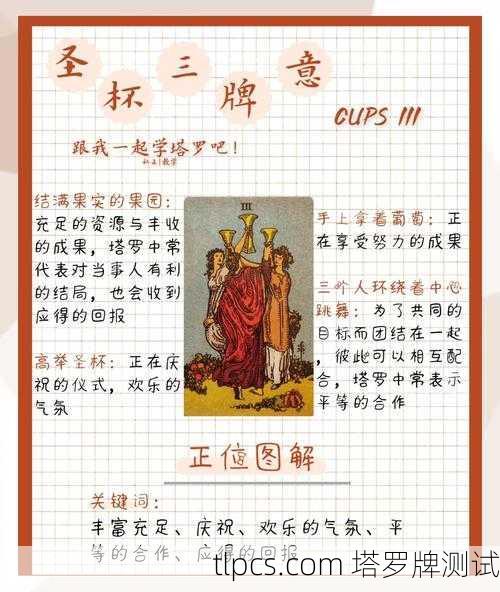 圣杯三牌意
CUPS III
跟我一起学塔罗吧！
结满果实的果园：
充足的资源与丰收
的成果，塔罗中常
代表对当事人有利
的结局，也会收到
应得的回报
高举圣杯：正在庆
祝的仪式，欢乐的
气氛
III
手上拿着葡萄：正
在享受努力的成果
三个人环绕着中心
跳舞：为了共同的
目标而团结在一起
，彼此可以相互配
合，塔罗中常表示
平等的合作
正位图解
关键词：
丰富充足、庆祝、欢乐的气氛、平
等的合作、应得的回报
tlpcs.com 塔罗牌测试